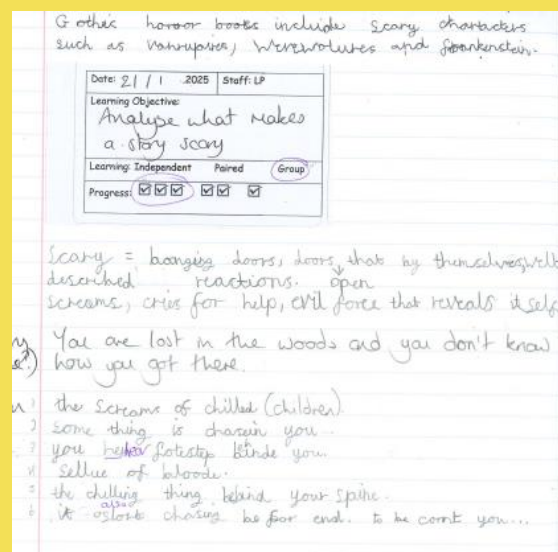 Gothic horror books include scary characters
such as vampires, werewolves and frankenstein.
Date: 21 / 1 .2025 Staff: LP
Learning Objective:
Analyse what makes
a story scary
Learning: Independent Paired Group
Progress:
Scary = banging doors, doors that by themselves, well
open
described reactions.
screams, cries for help, evil force that reveals itself
You are lost in the woods and you don't know
how you got there.
the screams of chilled (children)
some thing is chasein you...
you hear fotestep binde you.
of bloode.
the chilling thing behind your spine.
it chasing be for end. to be you...